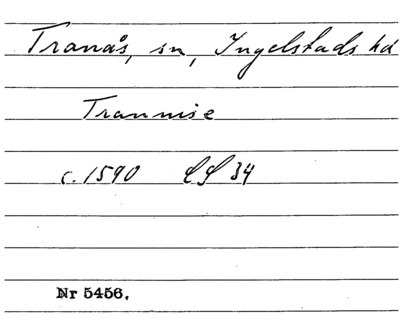 Tranås, sn, Ingelstads hd
Trannise
c. 1590 LL 34
Nr 5456.